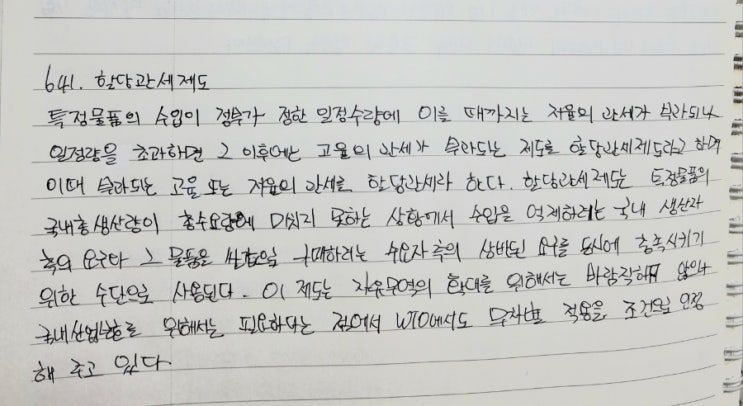 641. 할당관세제도
특정물품의 수입이 정부가 정한 일정수량에 이를 때까지는 저율의 관세가 부과되나
일정량을 초과하면 그 이후에는 고율의 관세가 부과되는 제도를 할당관세제도라고 하며
이때 부과되는 고율 또는 저율의 관세를 할당관세라 한다. 할당관세제도는 특정물품의
국내총생산량이 총수요량에 미치지 못하는 상황에서 수입을 억제하려는 국내 생산자
측의 요구와 그 물품을 싼값으로 구매하려는 수요자 측의 상반된 요구를 동시에 충족시키기
위한 수단으로 사용된다. 이 제도는 자유무역의 확대를 위해서는 바람직하지 않으나
국내산업보호를 위해서는 필요하다는 점에서 WTO에서도 무차별 적용을 조건으로 인정
해 주고 있다.